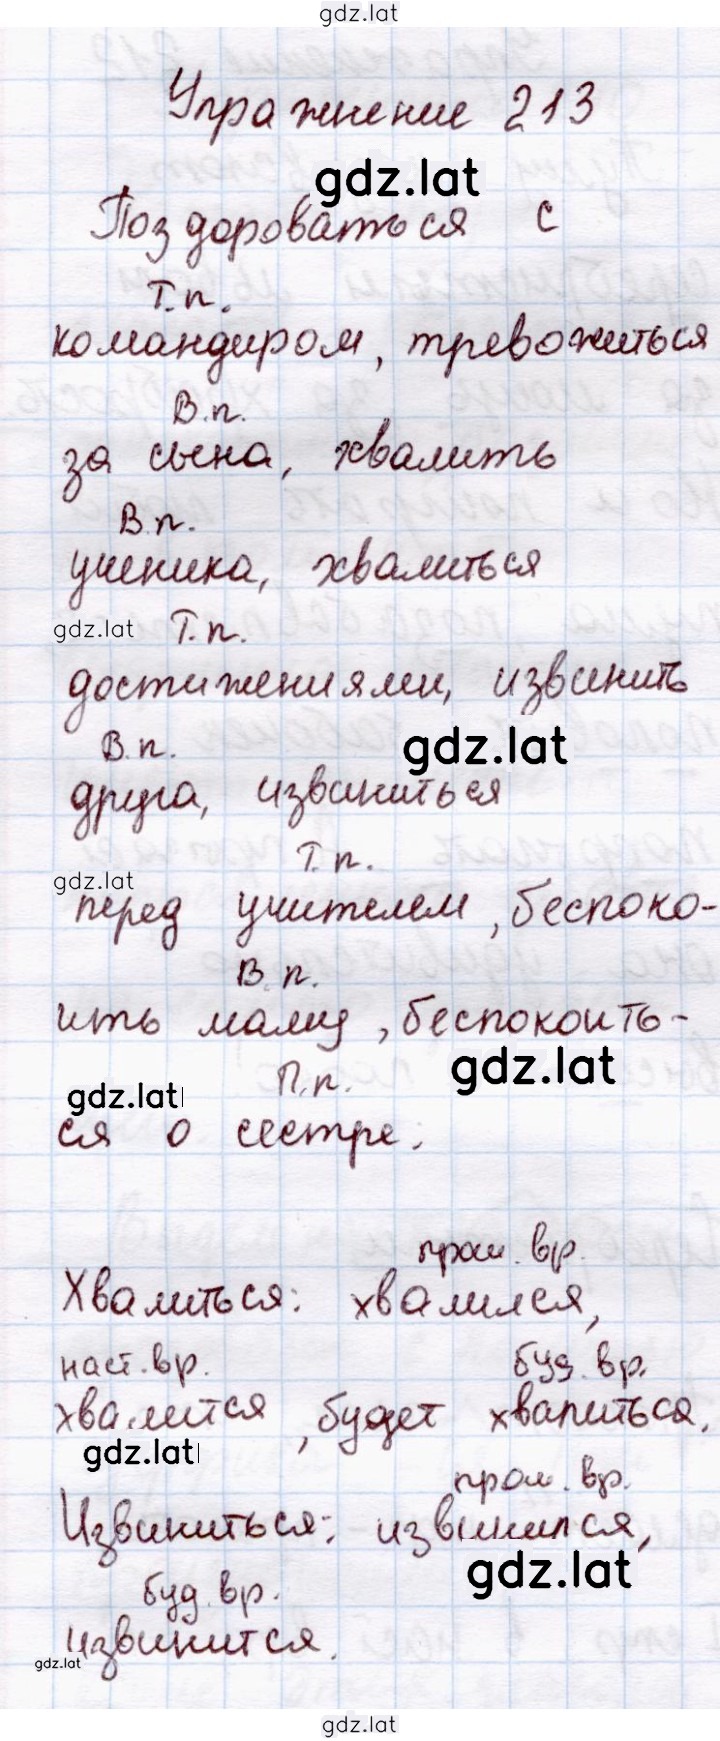 gdz.lat
Упражнение 213
gdz.lat
Поздороваться с
Т.п.
командиром, тревожиться
В.п.
за сына, хвалить
В.п.
ученика, хвалиться
gdz.lat Т.п.
достижениями, извинить
В.п. gdz.lat
друга, извиниться
Т.п.
gdz.lat
перед учителем, беспоко-
В.п.
ить маму, беспокоить-
gdz.lat
П.п.
gdz.lat
ся о сестре.
прош. вр.
Хвалиться: хвалился,
наст. вр. буд. вр.
хвалится, будет хвалиться.
gdz.lat
прош. вр.
Извиниться: извинился,
gdz.lat
буд. вр.
извинится.
gdz.lat
gdz.lat